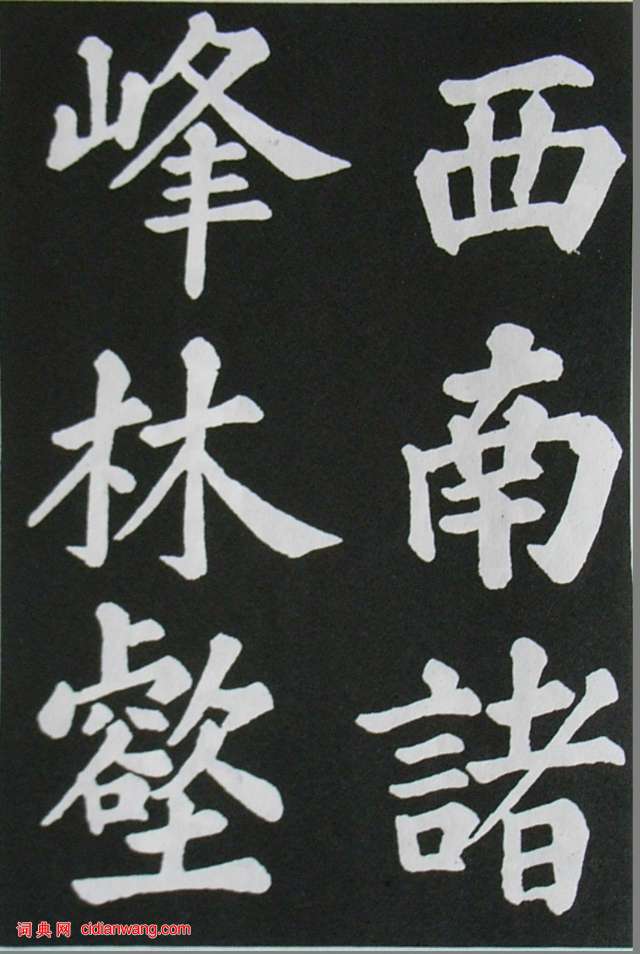 西南諸
峰林壑
词典网 cidianwang.com